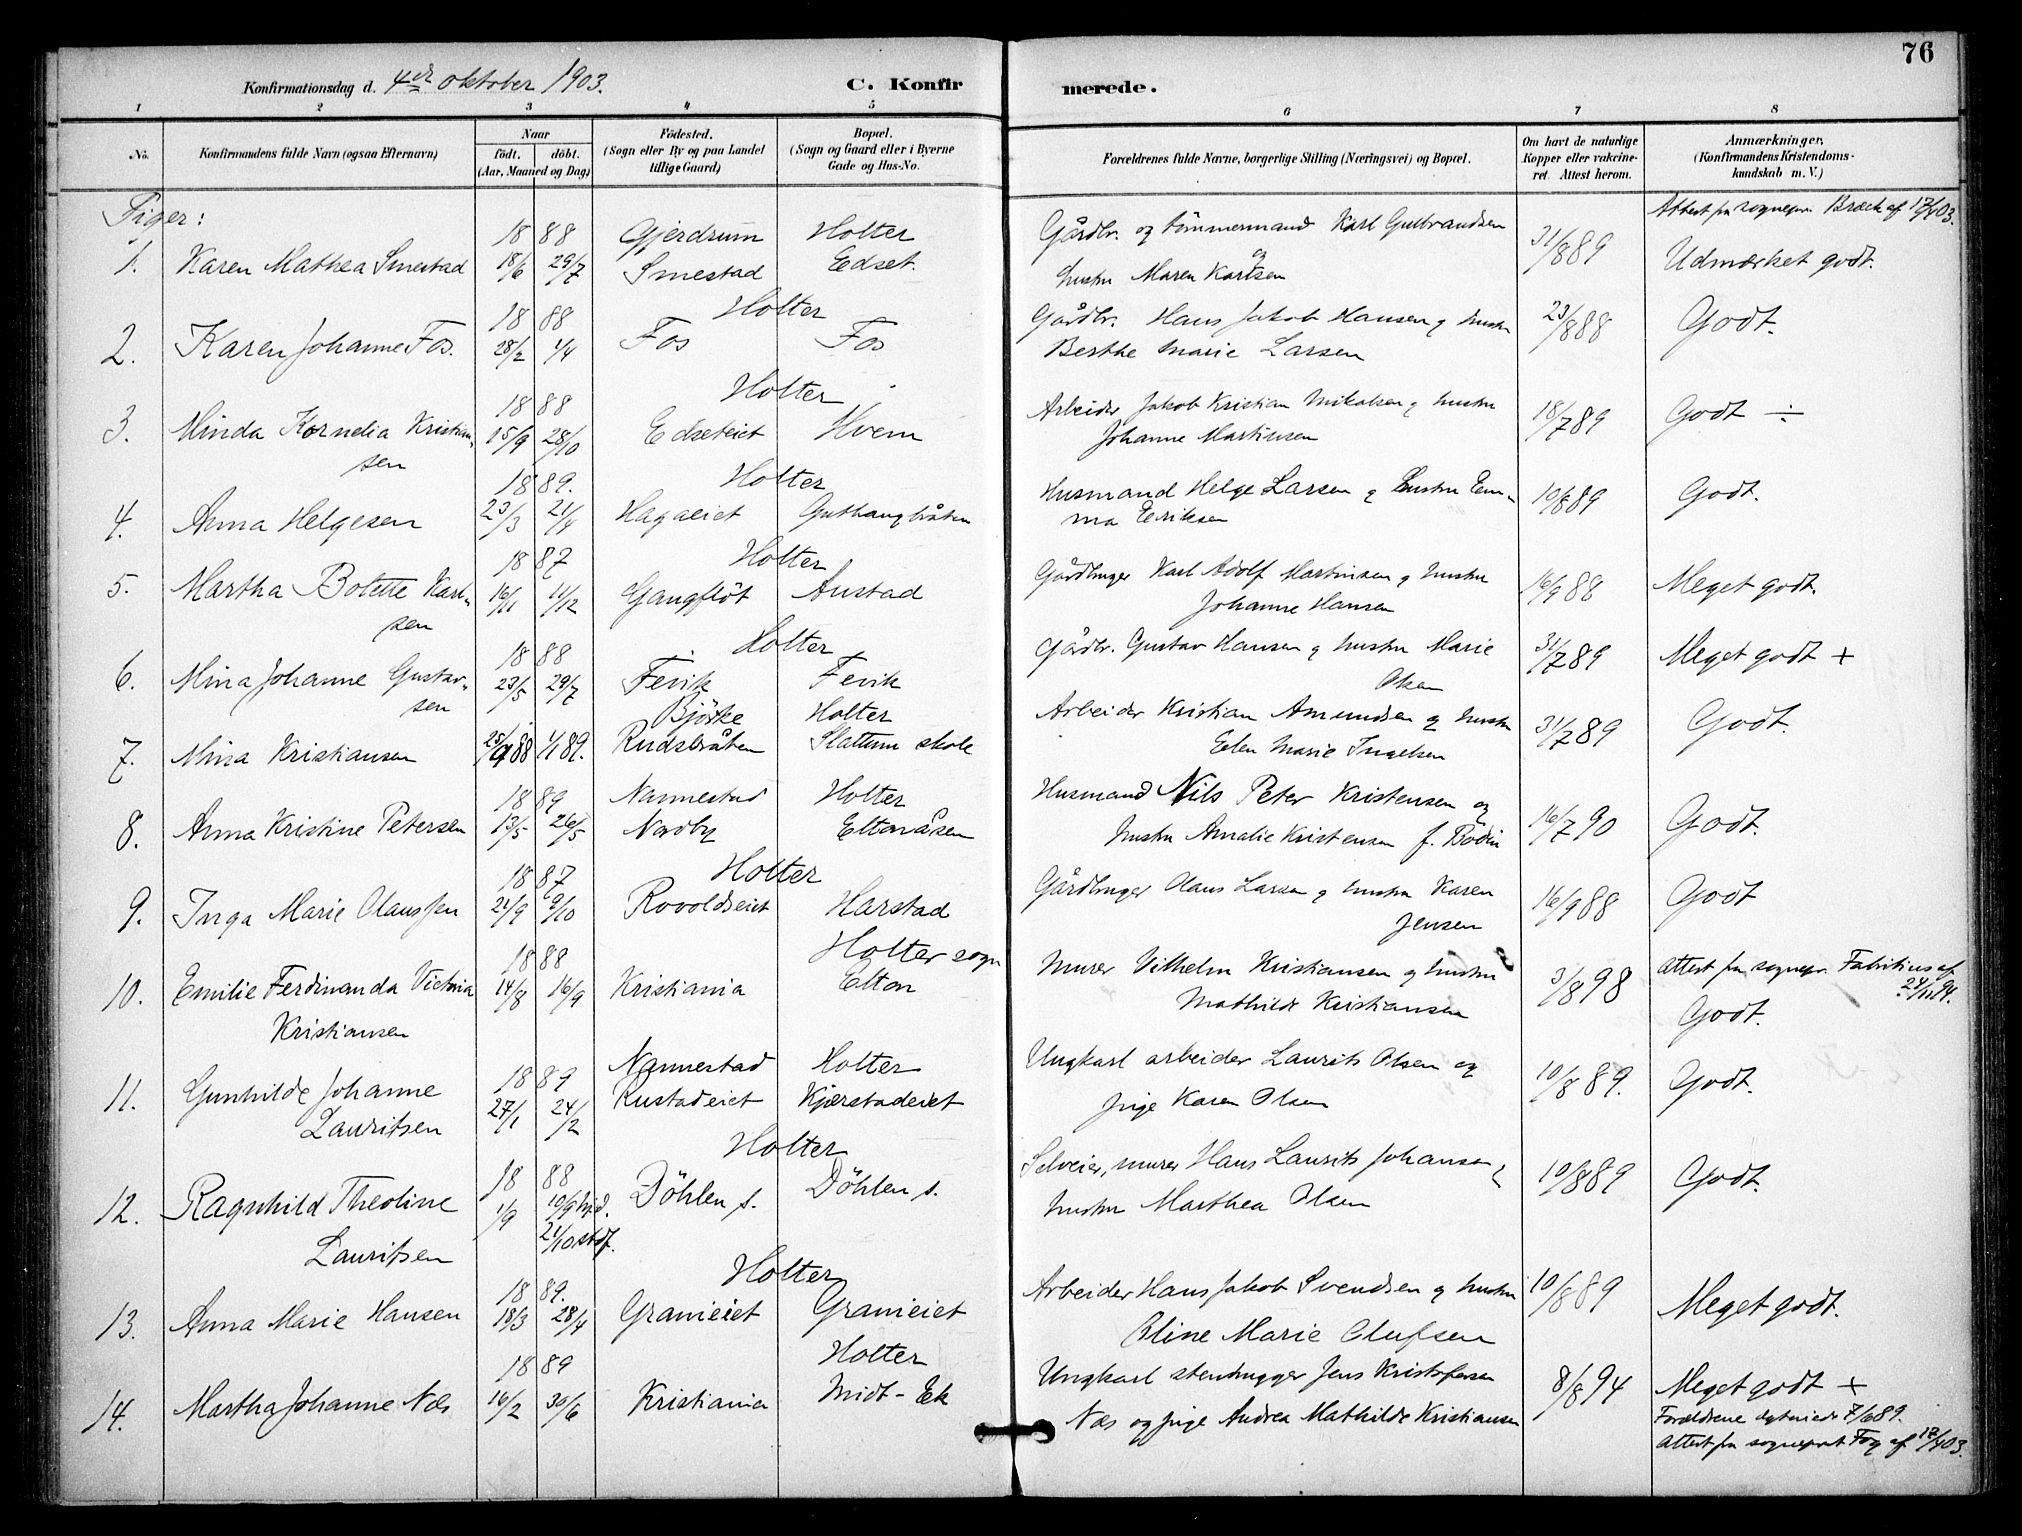 76
Konfirmationsdag d. 4de oktober 1903. C. Konfirmerede.
1 2 3 4 5 6 7 8
No. Konfirmandens fulde Navn (ogsaa Efternavn) Naar födt. döbt. (Aar, Maaned og Dag) Födested. (Sogn eller By og paa Landet tillige Gaard) Bopæl. (Sogn og Gaard eller i Byerne Gade og Hus-No. Forældrenes fulde Navne, borgerlige Stilling (Næringsvei) og Bopæl. Om havt de naturlige Kopper eller vakcineret. Attest herom. Anmærkninger. (Konfirmandens Kristendomskundskab m. V.)
Piger:
Attest fra sognepr. Bræck af 17/4 03.
18 88 Gjerdrum Holter Gårdbr. og tømmermand Karl Gulbrandsen og
1. Karen Mathea Smestad 18/6 29/7 Smestad Edset. hustru Maren Karlsen 31/8 89 Udmærket godt.
18 88 Holter Gårdbr. Hans Jakob Hansen og hustru
2. Karen Johanne Fos. 28/2 1/4 Fos Fos Berthe Marie Larsen 23/8 88 Godt.
18 88 Holter Arbeider Jakob Kristian Mikalsen og hustru
3. Minda Kornelia Kristiansen 15/9 28/10 Edseteiet Hvem Johanne Martinsen 18/7 89 Godt ÷
18 89. Holter Husmand Helge Larsen og hustru Em-
4. Anna Helgesen 23/3 21/4 Hagaeiet Guthaugbråten ma Eriksen 10/8 89 Godt.
18 87 Holter Gårdbruger Karl Adolf Martinsen og hustru
5. Martha Bolette Karlsen 16/11 11/12 Gangflöt Austad Johanne Hansen 16/9 88 Meget godt.
18 88 Holter Gårdbr. Gustav Hansen og hustru Marie
6. Mina Johanne Gustavsen 23/5 29/7 Fevik Fevik Olsen 31/7 89 Meget godt +
Bjørke Holter Arbeider Kristian Amundsen og hustru
7. Mina Kristiansen 25/9 88 1/1 89. Rudsbråten Slattum skole Elen Marie Ingelsen 31/7 89 Godt.
18 89 Nannestad Holter Husmand Nils Peter Kristensen og
8. Anna Kristine Petersen 13/5 26/5 Nordby Eltonåsen hustru Amalie Kristensen f. Bodin 16/7 90 Godt.
18 87 Holter Gårdbruger Claus Larsen og hustru Karen
9. Inga Marie Claussen 21/9 9/10 Rovoldseiet Harstad Jensen 16/9 88 Godt
18 88 Holter sogn Murer Vilhelm Kristiansen og hustru Attest fra sognepr. Fabritius af 24/11 94.
10. Emilie Ferdinanda Victoria Kristiansen 14/8 16/9 Kristiania Elton Mathilde Kristiansen 3/8 98 Godt.
18 89 Nannestad Holter Ungkarl arbeider Laurits Olsen og
11. Gunhilde Johanne Lauritsen 27/1 24/2 Rustadeiet Kjærstadeiet pige Karen Olsen 10/8 89. Godt.
18 88 Holter Selveier, murer Hans Laurits Johansen og
12. Ragnhild Theoline Lauritsen 1/9 10/9 hjd. 21/10 stdf. Döhlen s. Döhlen s. hustru Marthea Olsen 10/8 89 Godt.
18 89. Holter Arbeider Hans Jakob Svendsen og hustru
13. Anna Marie Hansen 18/3 28/4 Granieiet Granieiet Oline Marie Olufsen 10/8 89 Meget godt.
18 89 Holter Ungkarl stenhugger Jens Kristofersen
14. Martha Johanne Næs 16/2 30/6 Kristiania Midt-Ek Næs og pige Andrea Mathilde Kristiansen 8/8 94 Meget godt +
Forældrene 7/6 89.
Attest fra sogneprest Fog af 17/4 03.